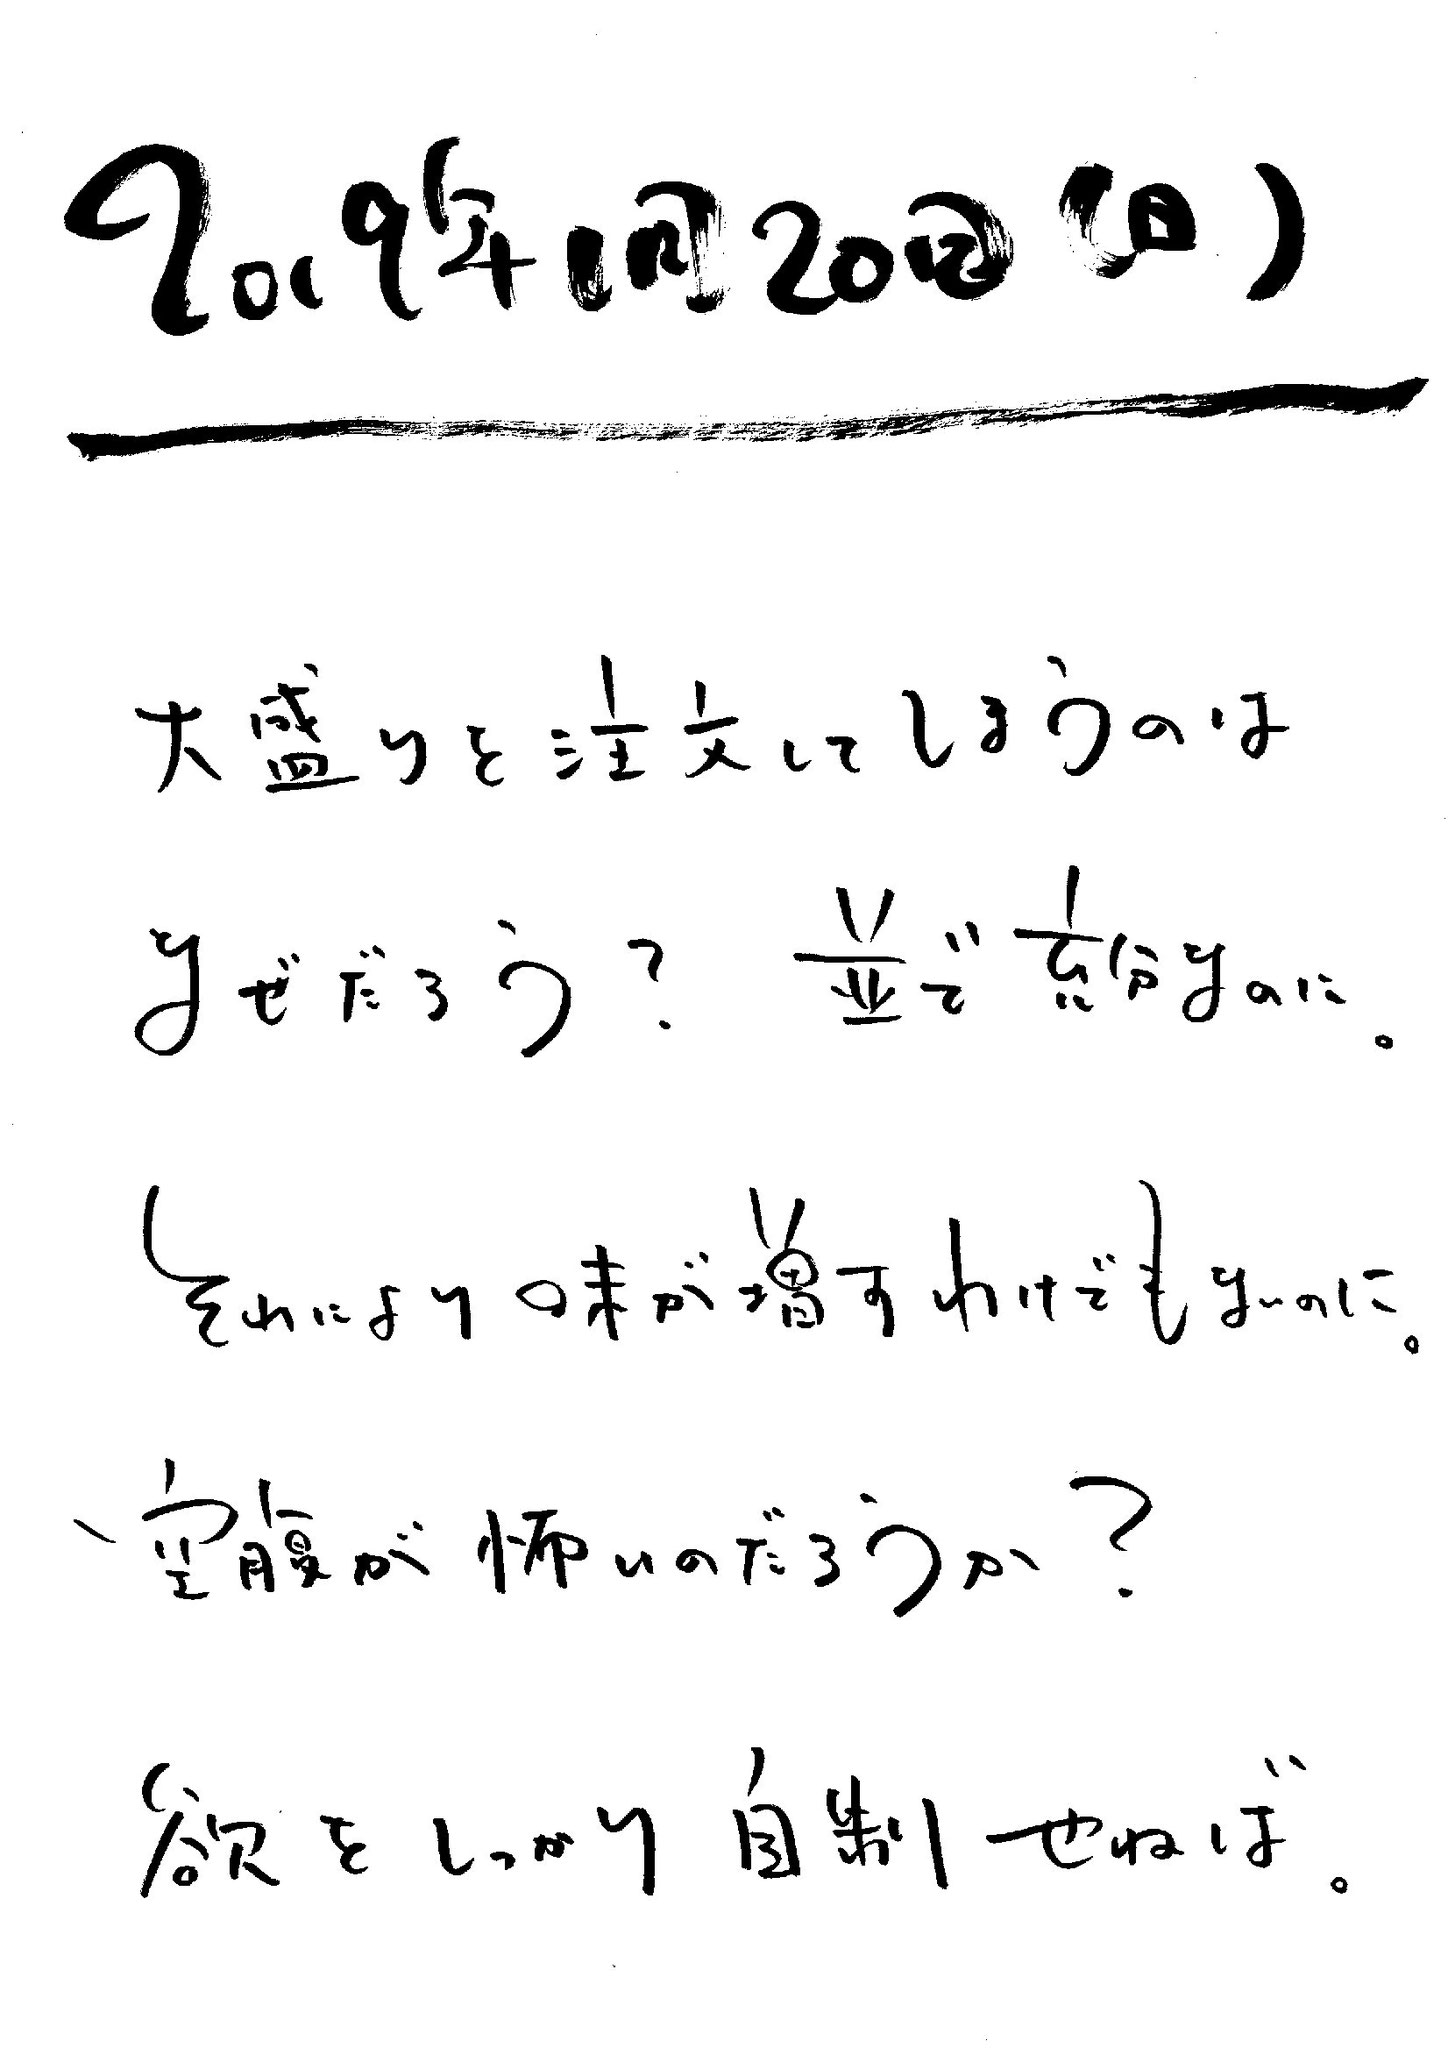 2019年1月20日(日)
大盛りを注文してしまうのは
なぜだろう？ 並で充分なのに。
それにより味が増すわけでもないのに。
空腹が怖いのだろうか？
欲をしっかり自制せねば。